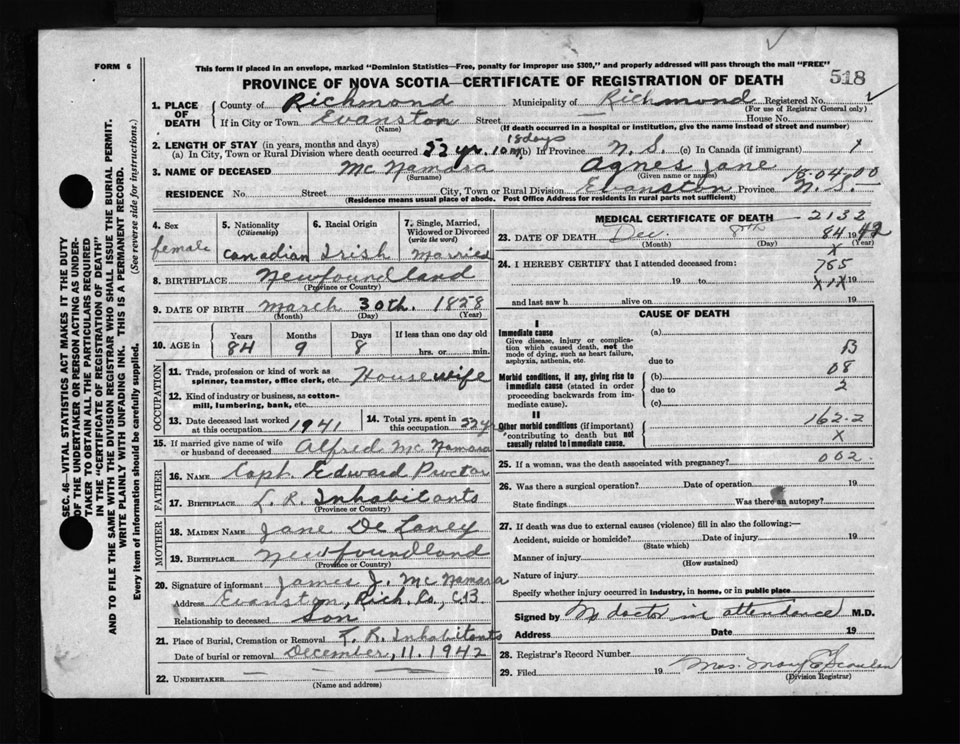 FORM 6
This form if placed in an envelope, marked "Dominion Statistics—Free, penalty for improper use $300," and properly addressed will pass through the mail "FREE"
PROVINCE OF NOVA SCOTIA—CERTIFICATE OF REGISTRATION OF DEATH
518
1. PLACE OF DEATH
County of Richmond Municipality of Richmond Registered No.
(For use of Registrar General only)
If in City or Town Evanston Street House No.
(Name) (If death occurred in a hospital or institution, give the name instead of street and number)
2. LENGTH OF STAY (in years, months and days)
18 days
(a) In City, Town or Rural Division where death occurred 52 yr. 10 m (b) In Province N. S. (c) In Canada (if immigrant)
3. NAME OF DECEASED Mc Namara Agnes Jane
(Surname) (Given name or names)
18.04.00
RESIDENCE No. Street City, Town or Rural Division Evanston Province N. S.
(Residence means usual place of abode. Post Office Address for residents in rural parts not sufficient)
4. Sex
female
5. Nationality
(Citizenship)
Canadian
6. Racial Origin
Irish
7. Single, Married, Widowed or Divorced
(write the word)
Married
8. BIRTHPLACE Newfoundland
(Province or Country)
9. DATE OF BIRTH March 30th. 1858
(Month) (Day) (Year)
10. AGE in
Years Months Days If less than one day old
84 9 8 hrs. or min.
OCCUPATION
11. Trade, profession or kind of work as spinner, teamster, office clerk, etc. House wife
12. Kind of industry or business, as cotton-mill, lumbering, bank, etc.
13. Date deceased last worked at this occupation 1941
14. Total yrs. spent in this occupation 52 yr
15. If married give name of wife or husband of deceased Alfred Mc Namara
FATHER
16. NAME Capt. Edward Proctor
17. BIRTHPLACE L. R. Inhabitants
(Province or Country)
MOTHER
18. MAIDEN NAME Jane De Laney
19. BIRTHPLACE Newfoundland
(Province or Country)
20. Signature of informant James J. Mc Namara
Address Evanston, Rich. Co., C.B.
Relationship to deceased Son
21. Place of Burial, Cremation or Removal L. R. Inhabitants
Date of burial or removal December, 11. 1942
22. UNDERTAKER
(Name and address)
MEDICAL CERTIFICATE OF DEATH
2132
23. DATE OF DEATH Dec. 8th 1942
84
(Month) (Day) (Year)
X
24. I HEREBY CERTIFY that I attended deceased from:
765
19 to 19
X1X
and last saw h alive on 19
CAUSE OF DEATH
I
Immediate cause
Give disease, injury or complication which caused death, not the mode of dying, such as heart failure, asphyxia, asthenia, etc.
(a)
B
due to
08
Morbid conditions, if any, giving rise to immediate cause (stated in order proceeding backwards from immediate cause).
(b)
due to
2
(c)
II
Other morbid conditions (if important) contributing to death but not causally related to immediate cause.
162.2
X
25. If a woman, was the death associated with pregnancy? 002.
26. Was there a surgical operation? Date of operation 19
State findings Was there an autopsy?
27. If death was due to external causes (violence) fill in also the following:—
Accident, suicide or homicide? Date of injury 19
(State which)
Manner of injury
(How sustained)
Nature of injury
Specify whether injury occurred in industry, in home, or in public place
Signed by No doctor in attendance M.D.
Address Date 19
28. Registrar's Record Number
29. Filed 19 Mrs. Mary E Scanlan
(Division Registrar)
SEC. 46—VITAL STATISTICS ACT MAKES IT THE DUTY
OF THE UNDERTAKER OR PERSON ACTING AS UNDER-
TAKER TO OBTAIN ALL THE PARTICULARS REQUIRED
IN THE "CERTIFICATE OF REGISTRATION OF DEATH"
AND TO FILE THE SAME WITH THE DIVISION REGISTRAR WHO SHALL ISSUE THE BURIAL PERMIT.
WRITE PLAINLY WITH UNFADING INK. THIS IS A PERMANENT RECORD.
Every item of information should be carefully supplied. (See reverse side for instructions.)